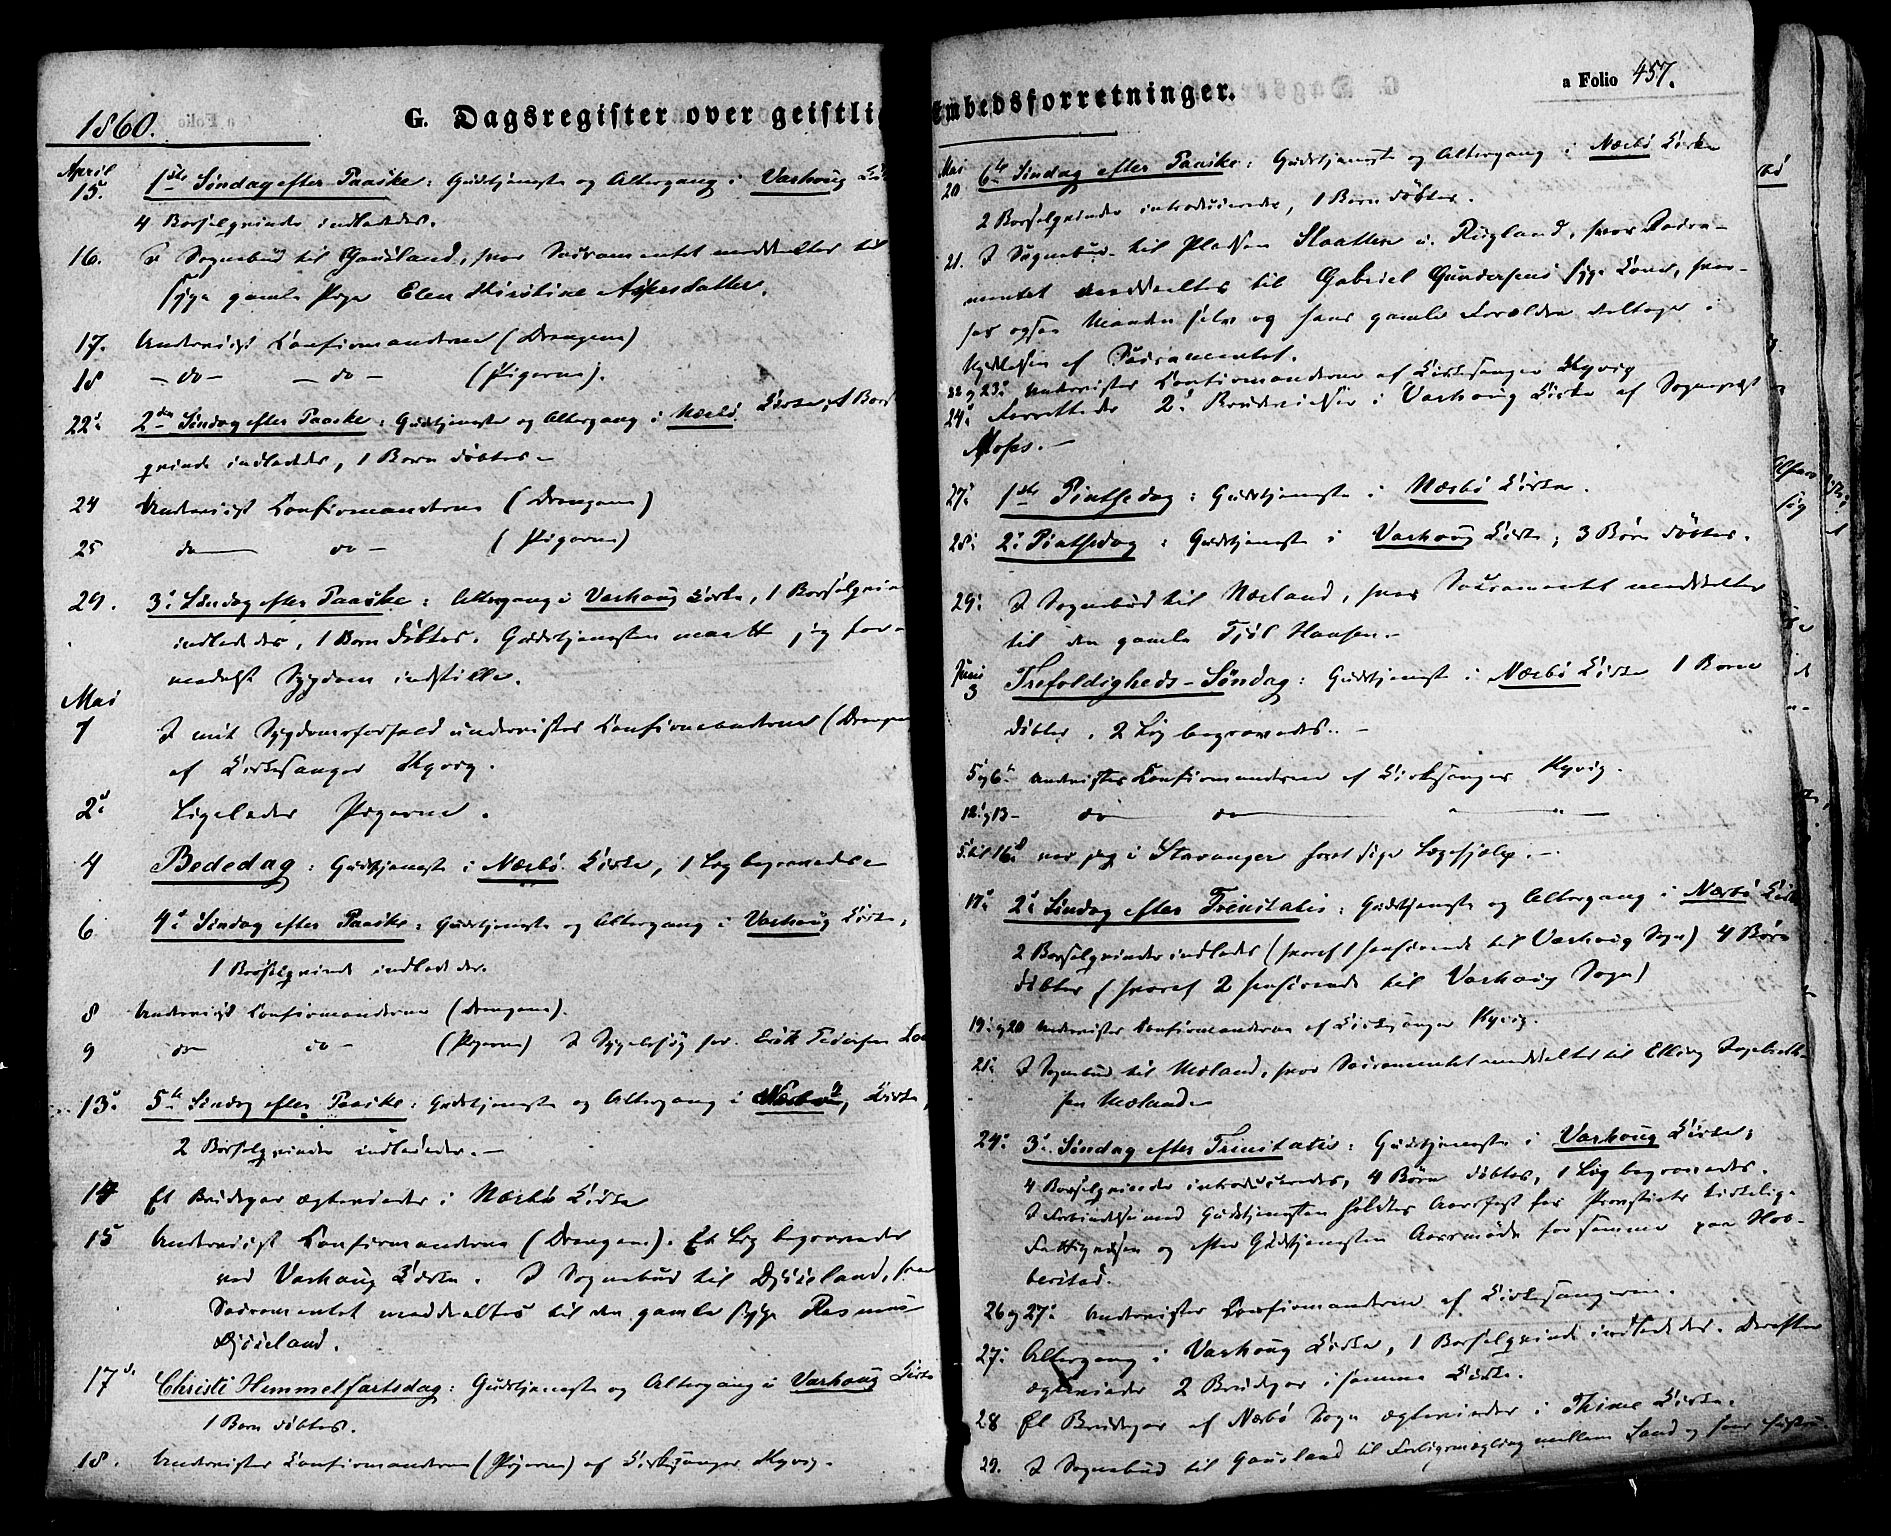 1860.
G. Dagsregister over geistli
April
15. 1ste Søndag efter Paaske: Gudstjeneste og Altergang i Varhoug Kir
4 Barselqvinder indledede.
16. I Sognebud til Gausland, hvor Sacramentet meddeeltes til
syge gamle Pige Elen Kirstine
17. Underviist Confirmanderne (Drengene)
18 - do - - do - (Pigerne).
22d 2den Søndag efter Paaske: Gudstjeneste og Altergang i Nærbø Kirke, 1 Bars
qvinde indlededes, 1 Barn døbtes -
24 Underviist Confirmanderne (Drengene)
25 do - do - (Pigerne)
29. 3d Søndag efter Paaske: Altergang i Varhoug Kirke, 1 Barselqvin
indlededes, 1 Barn døbtes. Gudstjenesten maatte jeg for
medelst Sygdom indstille.
Mai
1 I mit Sygdomsforfald undervistes Confirmanderne (Drengene
af Kirkesanger Kyvig.
2d Ligeledes Pigerne.
4 Bededag: Gudstjeneste i Nærbø Kirke, 1 Lig begravedes
6 4d Søndag efter Paaske: Gudstjeneste og Altergang i Varhoug Kirke,
1 Barselqvinde indlededes.
8 Underviist Confirmanderne (Drengene).
9 do - do - (Pigerne) I Sygebesøg hos Erik Pedersen
13d 5te Søndag efter Paaske: Gudstjeneste og Altergang i Nærbø Kirke,
2 Barselqvinder indlededes. -
14 Et Brudepar ægteviedes i Nærbø Kirke
15 Underviist Confirmanderne (Drengene). Et Lig begravedes
ved Varhoug Kirke. I Sognebud til Djusland, hvor
Sacramentet meddeeltes til den gamle syge Rasmus
Djusland.
17d Christi Hemmelfartsdag: Gudstjeneste og Altergang i Varhoug Kirke
1 Barn døbtes.
18. Undervistes Confirmanderne (Pigerne) af Kirkesanger Kyvig.
Embedsforretninger.
a Folio 457.
Mai
20 6te Søndag efter Paaske: Gudstjeneste og Altergang i Nærbø Kirke
2 Barselqvinder introduceredes, 1 Barn døbtes.
21. I Sognebud til Pladsen Slaatten u. Rugland, hvor Sacra-
mentet meddeeltes til Gabriel Gundersens syge Kone, hvor-
hos ogsaa Manden selv og hans gamle Forældre deltoge i
Nydelsen af Sacramentet.
22 og 23d undervistes Confirmanderne af Kirkesanger Kyvig
24d Forrettedes 2d Brudevielser i Varhoug Kirke af Sognepræst
27d 1ste Pintsedag: Gudstjeneste i Nærbø Kirke.
28d 2d Pintsedag: Gudstjeneste i Varhoug Kirke; 3 Børn døbtes.
29d I Sognebud til Nærland, hvor Sacramentet meddeeltes
til den gamle Tjøl Hansen. -
Juni
3 Trefoldigheds-Søndag: Gudstjeneste i Nærbø Kirke 1 Barn
døbtes, 2 Lig begravedes. -
5 og 6te undervistes Confirmanderne af Kirkesanger Kyvig.
12d og 13 - do do
5 til 16d var jeg i Stavanger for at søge Lægehjælp. -
17d 2d Søndag efter Trinitatis: Gudstjeneste og Altergang i Nærbø Kirke
2 Barselqvinder indledes (hvoraf 1 henhørende til Varhoug Sogn) 4 Børn
døbtes (hvoraf 2 henhørende til Varhoug Sogn)
19d og 20 undervistes Confirmanderne af Kirkesanger Kyvig.
21d I Sognebud til Mæland, hvor Sacramentet meddeeltes til Elling Ingebreth-
sen Mæland -
24d 3d Søndag efter Trinitatis: Gudstjeneste i Varhoug Kirke;
4 Barselqvinder introduceredes, 4 Børn døbtes, 1 Lig begravedes.
I Forbindelse med Gudstjenesten holdtes Aarsfest for Provstiets kirkelige
Fattigvæsen og efter Gudstjenesten Aarsmøde for samme paa Hob-
berstad.
26 og 27d undervistes Confirmanderne af Kirkesangeren.
27d Altergang i Varhoug Kirke, 1 Barselqvinde indlededes. Derefter
ægteviedes 2 Brudepar i samme Kirke.
28 Et Brudepar af Nærbø Sogn ægteviedes i Thime Kirke.
29. I Sognebud til Gausland til Forligsmægling mellem